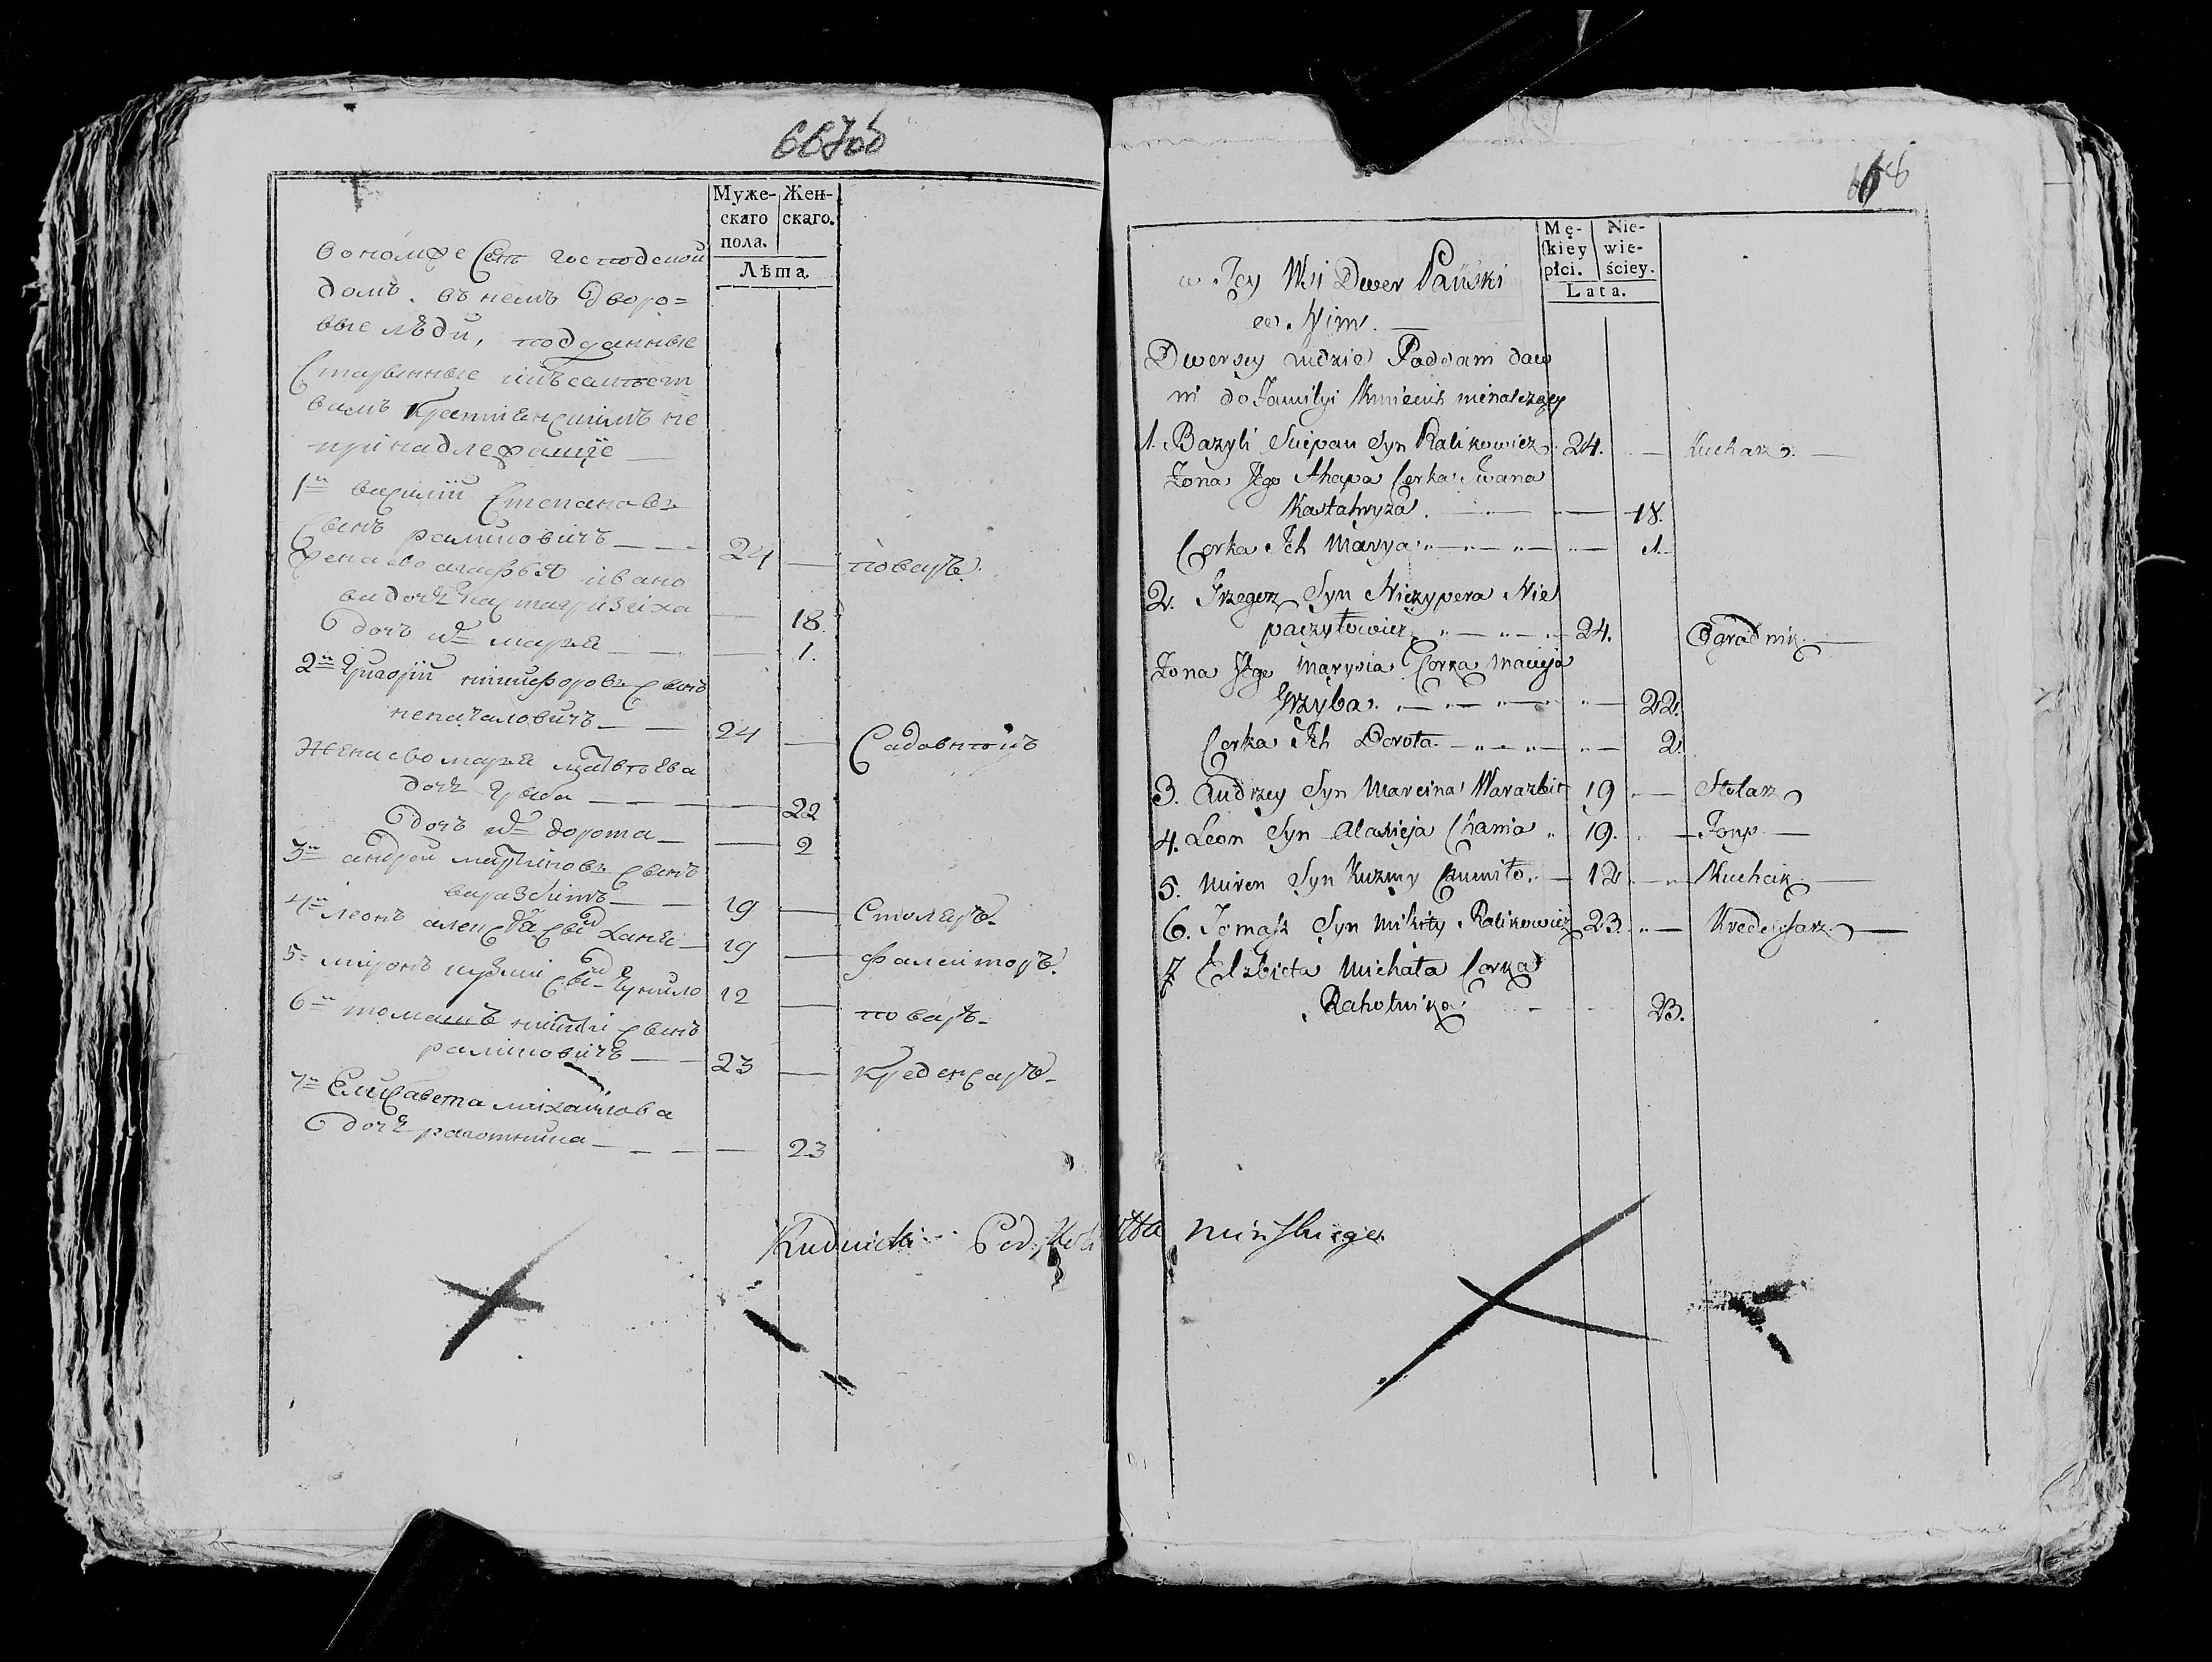 667об
Муже- Жен-
скаго скаго.
пола.
Лѣта.
Вономже Селѣ господской
домъ. въ немъ дворо=
вые люди, подданные
Старынные
не
принадлежащїе —
1й василїй Степановъ
сынъ раликовичъ — — 24 — поваръ.
жена ево агафья ивано
ва дочь кастагризиха — 18
дочь их марья — — — 1.
2й Григорїй никифоровъ сынъ
непачаловичъ — — 24 — Садовникъ
Жена ево марья матвѣева
дочь грыба — — — 22
дочь их дорота — — 2
3й андрей мартиновъ сынъ
варазбитъ — — 19 — Столяръ.
4й леонъ алексѣя сынъ ханя — 19 — фалейторъ.
5й миронъ кузми сынъ чумило 12 — поваръ.
6й томашъ никиты сынъ
раликовичъ — — 23 — креденсаръ.
7й Елисавета михайлова
дочь рахотника — — — 23
Rudnicki
668
Mę- Nie-
skiey wie-
płci. ściey.
Lata.
w Tey Wsi Dwor Pański
w Nim. —
Dworscy ludzie Poddani daw
ni do Familyi Kmiecich nienalezący
1. Bazyli Sciepan Syn Ralikowicz. 24. — Kucharz. —
Zona Jego Ahapa Corka Iwana
Kastahryza. — 18.
Corka Ich Marya — 1.
2. Grzegorz Syn Niczypera Nie
paczyłowicz — 24. Ogrodnik —
Zona Jego Marysia Corka Macieja
Grzyba — 22.
Corka Ich Dorota — 2.
3. Andrzey Syn Marcina Warazbit 19 — Stolarz
4. Leon Syn Alaxieja Chania 19. — Forys —
5. Miron Syn Kuzmy Czumiło — 12 — Kuchcik —
6. Tomasz Syn Mikity Ralikowicz 23. — Kredensarz —
7 Elzbieta Michała Corka
Rahotnika — 23.